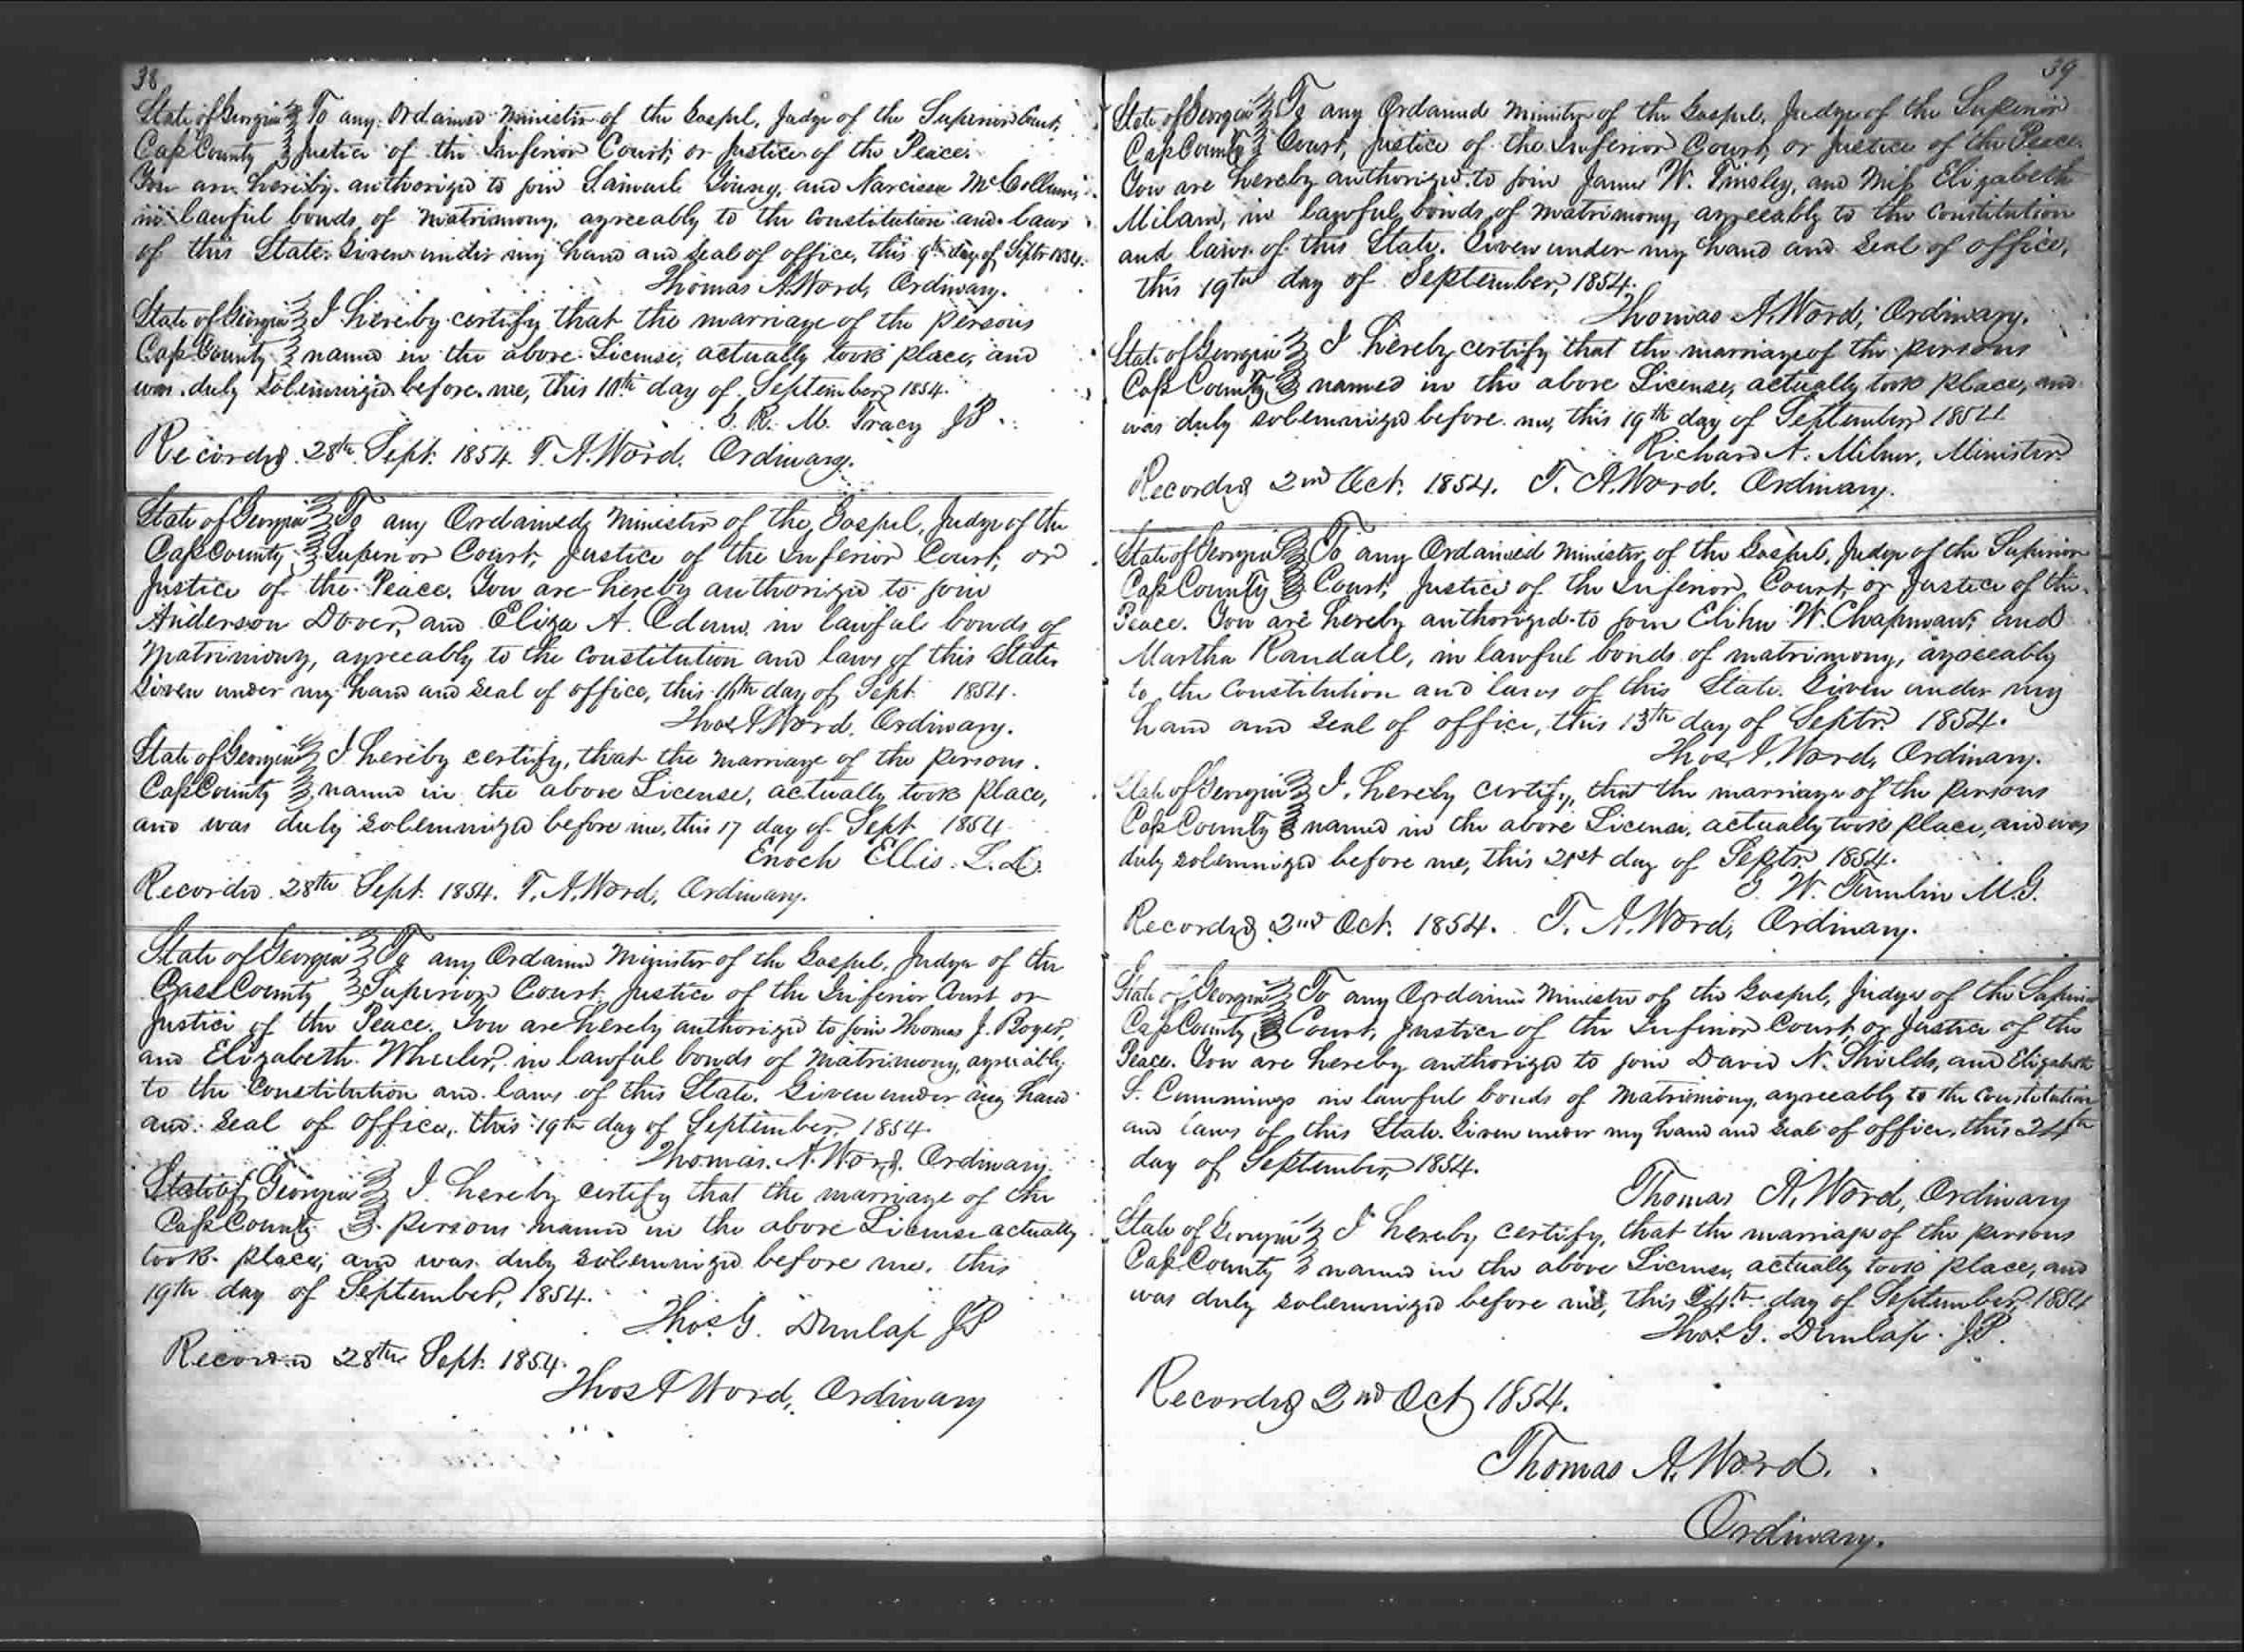 38
State of Georgia } To any Ordained Minister of the Gospel, Judge of the Superior Court,
Cass County } Justice of the Inferior Court, or Justice of the Peace.
You are hereby authorized to join Samuel Young, and Narcissa McCollum,
in lawful bonds of matrimony, agreeably to the Constitution and laws
of this State. Given under my hand and seal of office, this 9th day of Septr 1854.
Thomas A. Word, Ordinary.
State of Georgia } I hereby certify that the marriage of the persons
Cass County } named in the above License, actually took place, and
was duly solemnized before me, this 10th day of September 1854.
R. M. Tracy JP.
Recorded 28th Sept. 1854. T. A. Word. Ordinary.
State of Georgia } To any Ordained Minister of the Gospel, Judge of the
Cass County } Superior Court, Justice of the Inferior Court, or
Justice of the Peace. You are hereby authorized to join
Anderson Dover, and Eliza A. in lawful bonds of
Matrimony, agreeably to the Constitution and laws of this State.
Given under my hand and seal of office, this day of Sept. 1854.
Thos A Word, Ordinary.
State of Georgia } I hereby certify, that the marriage of the persons
Cass County } named in the above License, actually took place,
and was duly solemnized before me, this 17 day of Sept 1854
Enoch Ellis. L.D.
Recorded 28th Sept. 1854. T. A. Word, Ordinary.
State of Georgia } To any Ordained Minister of the Gospel, Judge of the
Cass County } Superior Court, Justice of the Inferior Court or
Justice of the Peace. You are hereby authorized to join Thomas J. Boyer,
and Elizabeth Wheeler, in lawful bonds of Matrimony, agreeably
to the Constitution and laws of this State. Given under my hand
and seal of office, this 19th day of September, 1854.
Thomas. A. Word. Ordinary.
State of Georgia } I hereby certify that the marriage of the
Cass County } persons named in the above License actually
took place, and was duly solemnized before me, this
19th day of September, 1854.
Thos. G. Dunlap JP
Recorded 28th Sept. 1854.
Thos A Word, Ordinary
39
State of Georgia } To any Ordained Minister of the Gospel, Judge of the Superior
Cass County } Court, Justice of the Inferior Court, or Justice of the Peace.
You are hereby authorized to join James W. Tinsley, and Miss Elizabeth
Milam, in lawful bonds of matrimony, agreeably to the Constitution
and laws of this State. Given under my hand and seal of office,
this 19th day of September, 1854.
Thomas A. Word, Ordinary.
State of Georgia } I hereby certify that the marriage of the persons
Cass County } named in the above License, actually took place, and
was duly solemnized before me, this 19th day of September 1854
Richard A. Milner, Minister
Recorded 2nd Oct. 1854. T. A. Word. Ordinary.
State of Georgia } To any Ordained Minister, of the Gospel, Judge of the Superior
Cass County } Court, Justice of the Inferior Court, or Justice of the
Peace. You are hereby authorized to join Elihu W. Chapman, and
Martha Randall, in lawful bonds of matrimony, agreeably
to the Constitution and laws of this State. Given under my
hand and seal of office, this 13th day of Septr. 1854.
Thos. A. Word, Ordinary.
State of Georgia } I, hereby certify, that the marriage of the persons
Cass County } named in the above License, actually took place, and was
duly solemnized before me, this 21st day of Septr. 1854.
W. Tumlin M.G.
Recorded 2nd Oct. 1854. T. A. Word, Ordinary.
State of Georgia } To any Ordained Minister of the Gospel, Judge of the Superior
Cass County } Court, Justice of the Inferior Court, or Justice of the
Peace. You are hereby authorized to join David N. Shields, and Elizabeth
S. Cummings in lawful bonds of Matrimony, agreeably to the Constitution
and laws of this State. Given under my hand and seal of office, this 24th
day of September, 1854.
Thomas A. Word, Ordinary
State of Georgia } I hereby certify, that the marriage of the persons
Cass County } named in the above License, actually took place, and
was duly solemnized before me, this 24th day of September, 1854
Thos. G. Dunlap. J.P.
Recorded 2nd Oct 1854.
Thomas A. Word.
Ordinary.